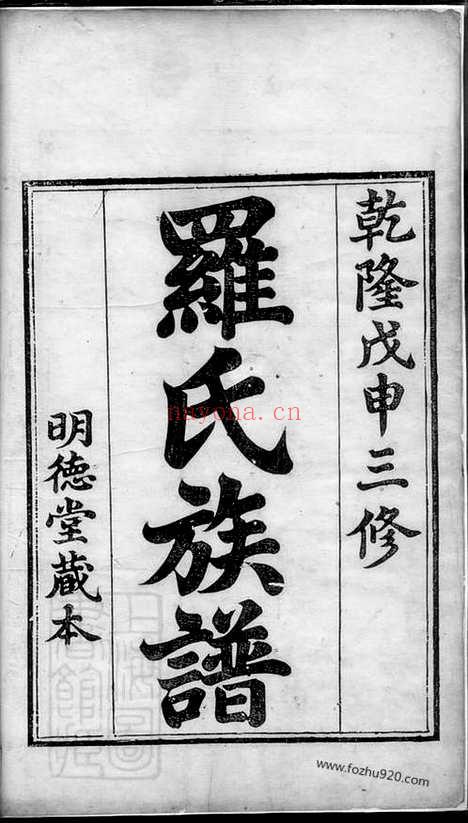 乾隆戊申三修
羅氏族譜
明德堂藏本
nayona.cn
www.fozhu920.com